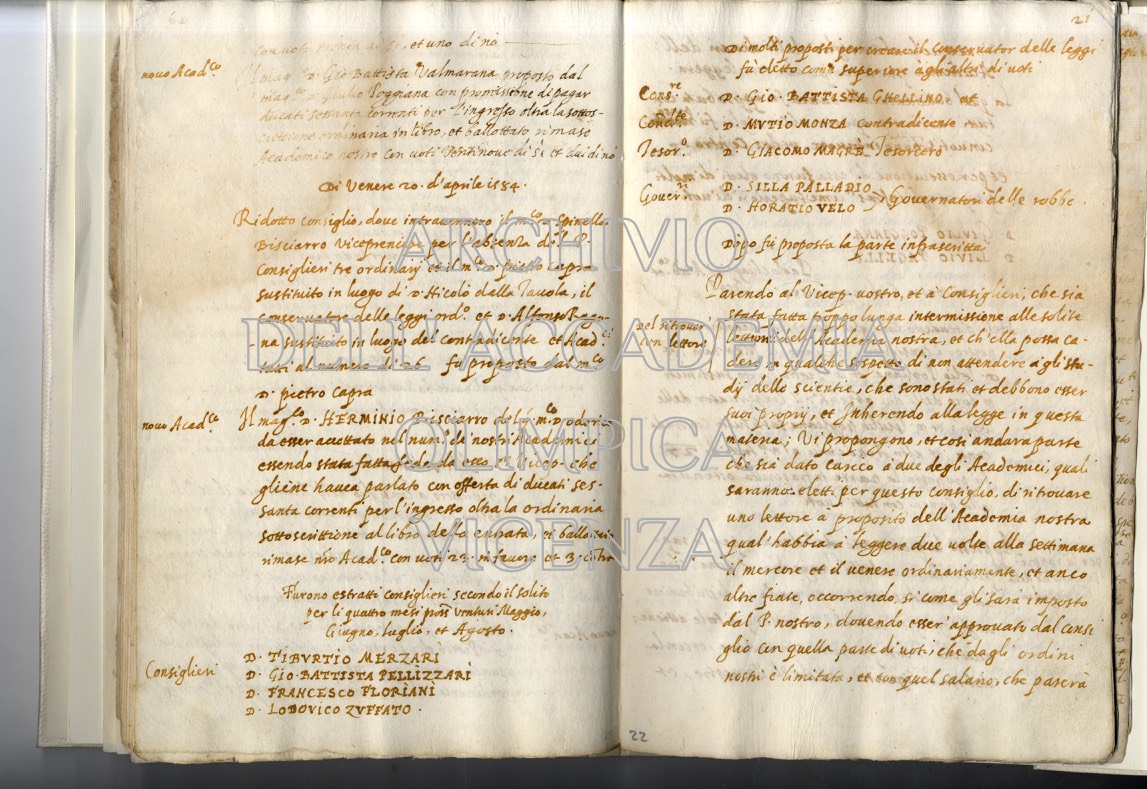 con voti trenta di si, et uno di nò
novo Acad.co
Il mag.co D. Gio Battista Valmarana proposto dal
mag.co D. Giulio Poggiana con promissione di pagar
ducati sessanta correnti per l'ingresso oltra la sottos-
crittione ordinaria in libro, et ballottato rimase
Academico nostro con voti Ventinove di sì et dui di nò
Di Venere 20. d'aprile 1584.
Ridotto consiglio, dove intravennero il m.co D. Spinella
Bisciarro Viceprencipe per l'absenza del P.
Consiglieri tre ordinarij et il m.co D. pietro capra
sustituito in luogo di D. Nicolò dalla Tavola, il
conservatore delle leggi ord.o et D. Alfonso Ragu-
na sustituito in luogo del contradicente et Acad.ci
tutti al numero di 26 fu proposto dal m.co
D. pietro capra
novo Acad.co
Il mag.co D. HERMINIO Bisciarro del q. m.co D. Joderico
da esser accettato nel num.o de nostri Academici
essendo stata fatta fede da esso Vicep. che
gliene havea parlato con offerta di ducati ses-
santa correnti per l'ingresso oltra la ordinaria
sottoscrittione al libro della entrata, et ballo
rimase nro Acad.co con voti 23. in favore et 3. cōtra
Furono estratti consiglieri secondo il solito
per li quattro mesi pross. venturi Maggio,
Giugno, luglio, et Agosto.
Consiglieri
D. TIBVRTIO MERZARI
D. GIO. BATTISTA PELLIZZARI
D. FRANCESCO FLORIANI
D. LODOVICO ZVFFATO.
21
Di molti proposti per creare il conservator delle leggi
fu eletto come superiore agli altri di voti
Cons.re
D. GIO. BATTISTA GHELLINO et
Contr.te
D. MVTIO MONZA contradicente
Tesor.o
D. GIACOMO MAGRÈ Tesoriero
Gover.ri
D. SILLA PALLADIO
D. HORATIO VELO
Governatori delle robbe.
Dipo fu proposta la parte infrascritta
Parendo al Vicep. vostro, et à Consiglieri, che sia
stata fatta troppo lunga intermissione alle solite
Del ritrovar
un lettore
lettioni del Academia nostra, et ch'ella possa ca-
dere in qualche sospetto di non attendere a gli stu-
dij delle scientie, che sono stati et debbono esser
suoi proprij, et Inherendo alla legge in questa
materia; Vi propongono, et cosi andarà parte
che sia dato carico à due degli Academici, quali
saranno eletti per questo consiglio, di ritrovare
uno lettore a proposito dell'Academia nostra
qual'habbia à leggere due volte alla settimana
il mercore et il venere ordinariamente, et anco
altre fiate, occorrendo, si come gli sarà imposto
dal P. nostro, dovendo esser approvato dal consi
glio con quella parte di voti, che dagli ordini
nostri è limitata, et con quel salario, che parerà
22
ARCHIVIO
DELL'ACCADEMIA
OLIMPICA
VICENZA